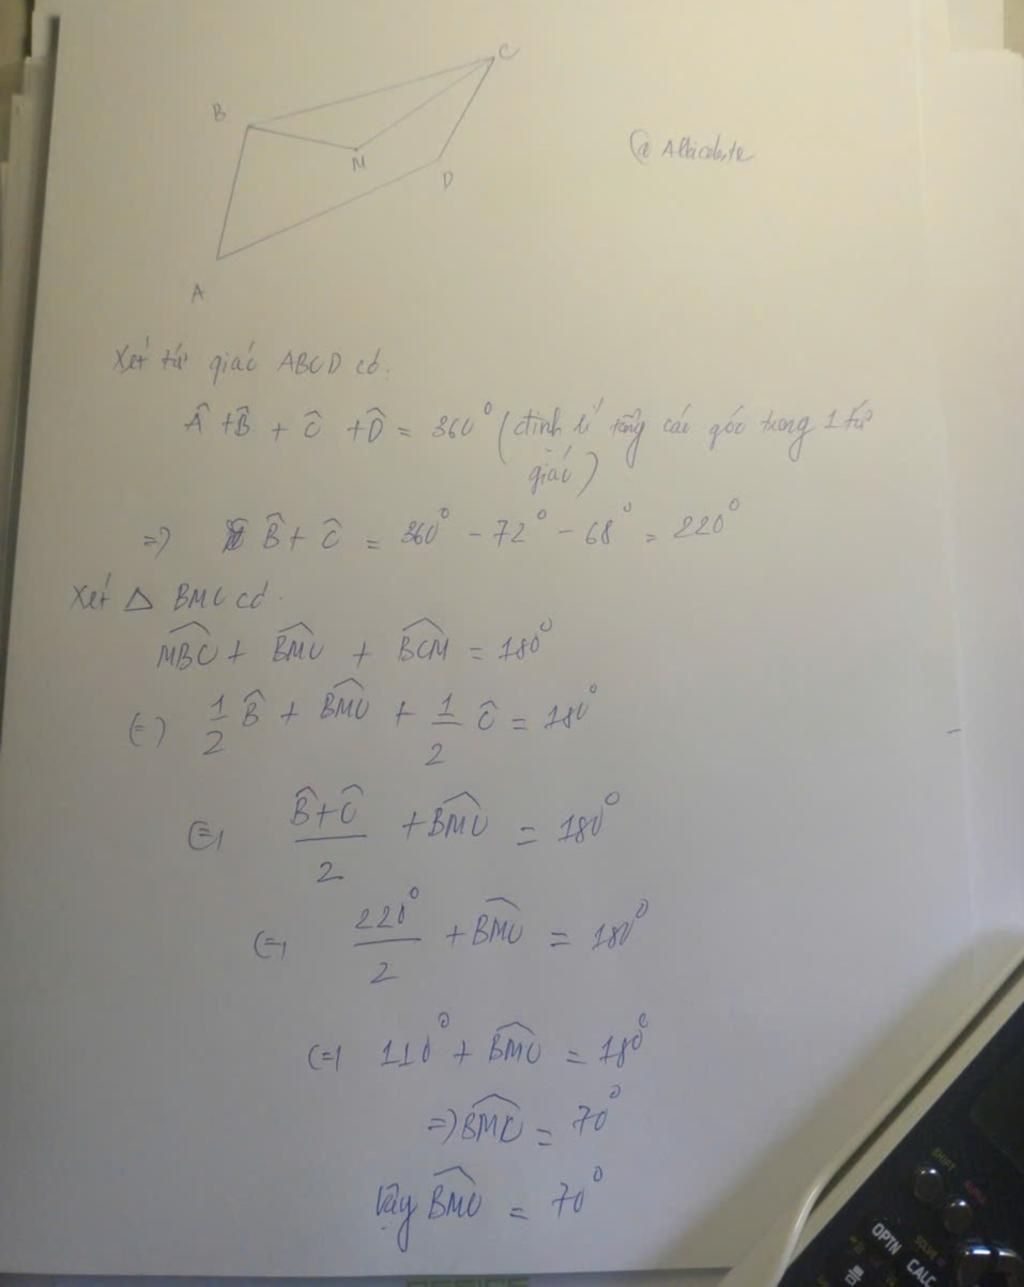 C
B
@ Albiceleste
M
D
A
Xét tứ giác ABCD có:
Â + B̂ + Ĉ + D̂ = 360° (định lí tổng các góc trong 1 tứ
giác)
=> B̂ + Ĉ = 360° - 72° - 68° = 220°
Xét △ BMC có:
\widehat{MBC} + \widehat{BMC} + \widehat{BCM} = 180°
(=) 1/2 B̂ + \widehat{BMC} + 1/2 Ĉ = 180°
(=) (B̂ + Ĉ)/2 + \widehat{BMC} = 180°
(=) 220°/2 + \widehat{BMC} = 180°
(=) 110° + \widehat{BMC} = 180°
=> \widehat{BMC} = 70°
Vậy \widehat{BMC} = 70°
SHIFT
OPTN
CALC